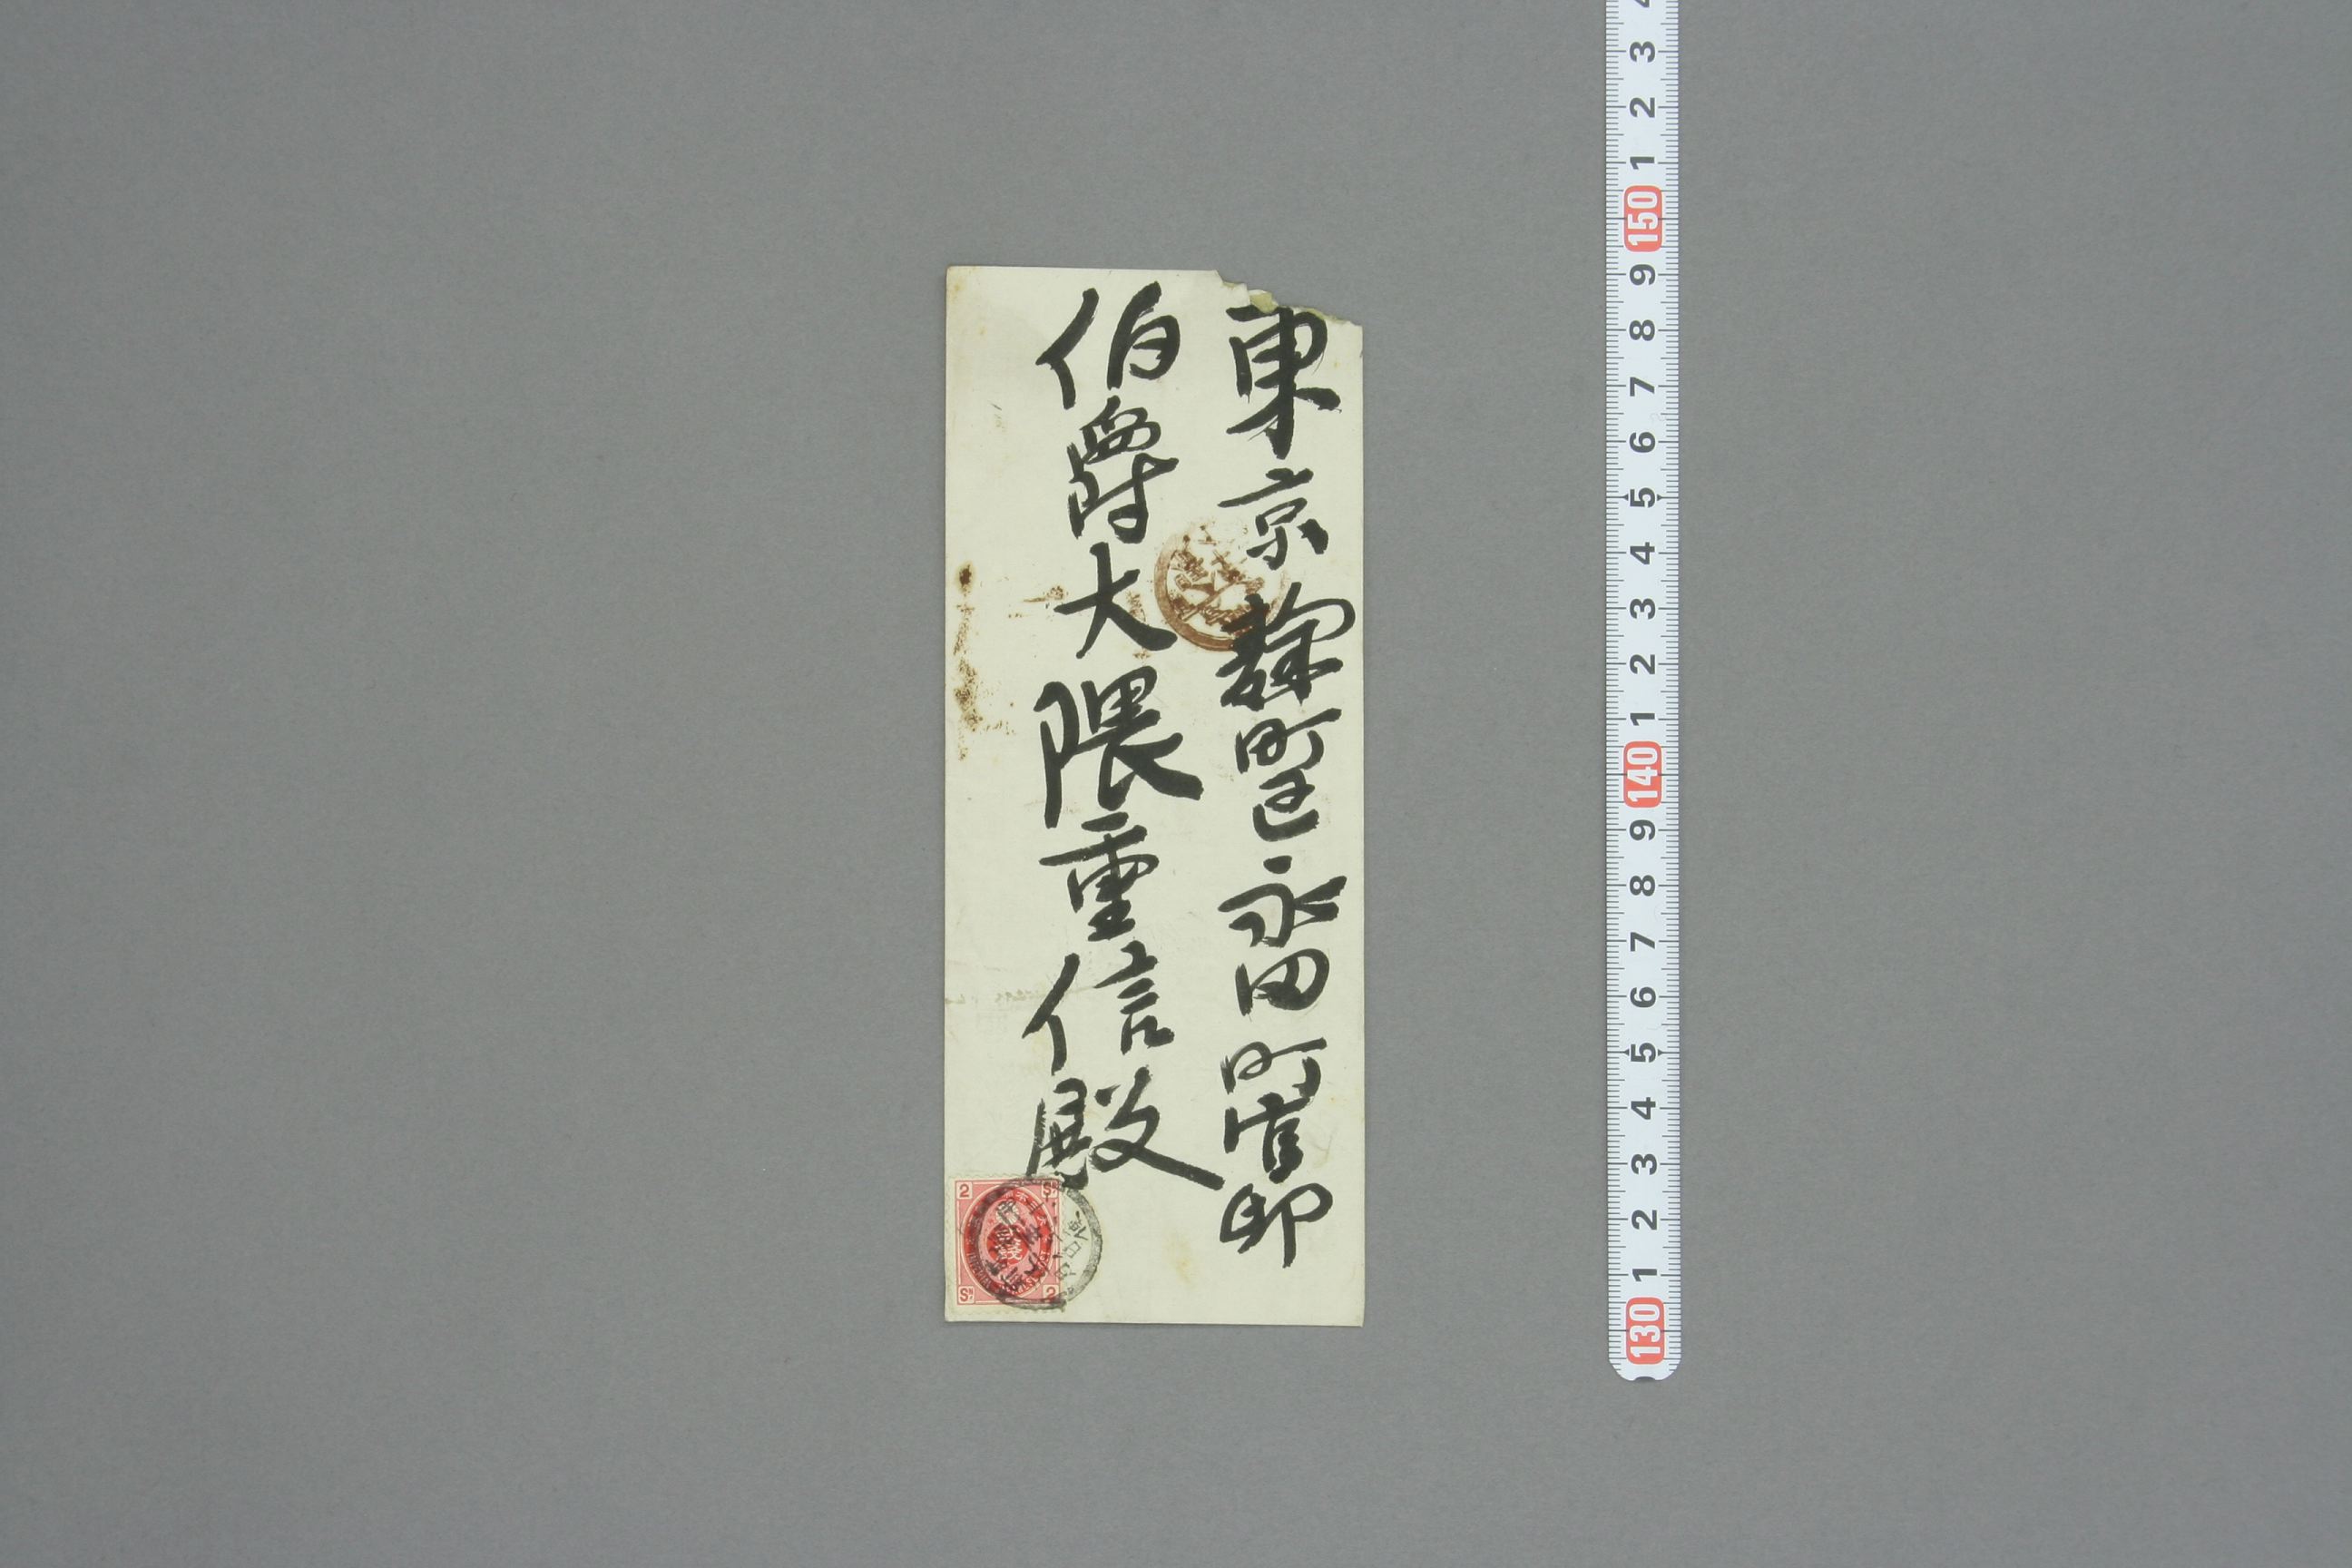 東京麹町区永田町官邸
伯爵大隈重信殿
2 Sn
Sn 2
4
3
2
1
150
9
8
7
6
5
4
3
2
1
140
9
8
7
6
5
4
3
2
1
130